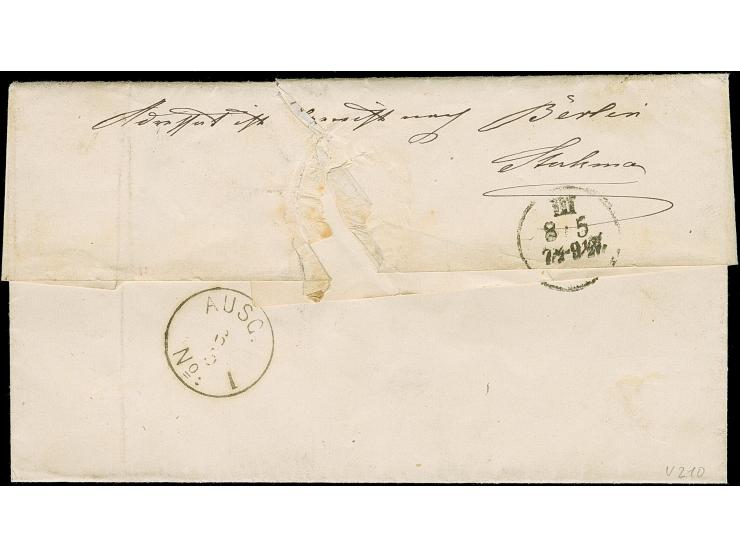 Adressat ist verreist nach Berlin
Stukma
III
8 5
AUSG.
No 1
V 210